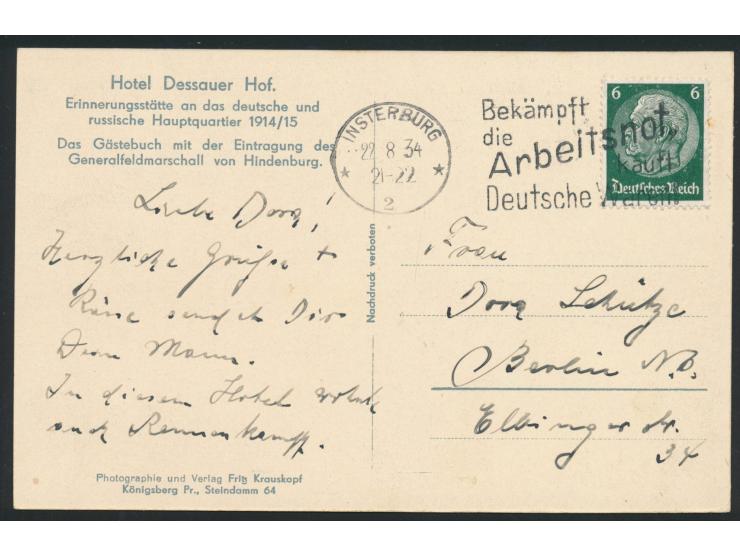 Hotel Dessauer Hof.
Erinnerungsstätte an das deutsche und
russische Hauptquartier 1914/15
Das Gästebuch mit der Eintragung des
Generalfeldmarschall von Hindenburg.
Liebe Dora!
Herzliche Grüße +
Küsse sendet Dir
Dein Mann.
In diesem Hotel wohnte
auch Rennenkampf.
Photographie und Verlag Fritz Krauskopf
Königsberg Pr., Steindamm 64
Nachdruck verboten
INSTERBURG
22 8 34
21-22
2
Bekämpft
die
Arbeitsnot,
kauft
Deutsche Waren!
6 6
Deutsches Reich
Frau
Dora Schütze
Berlin N.O.
Elbinger Str.
34